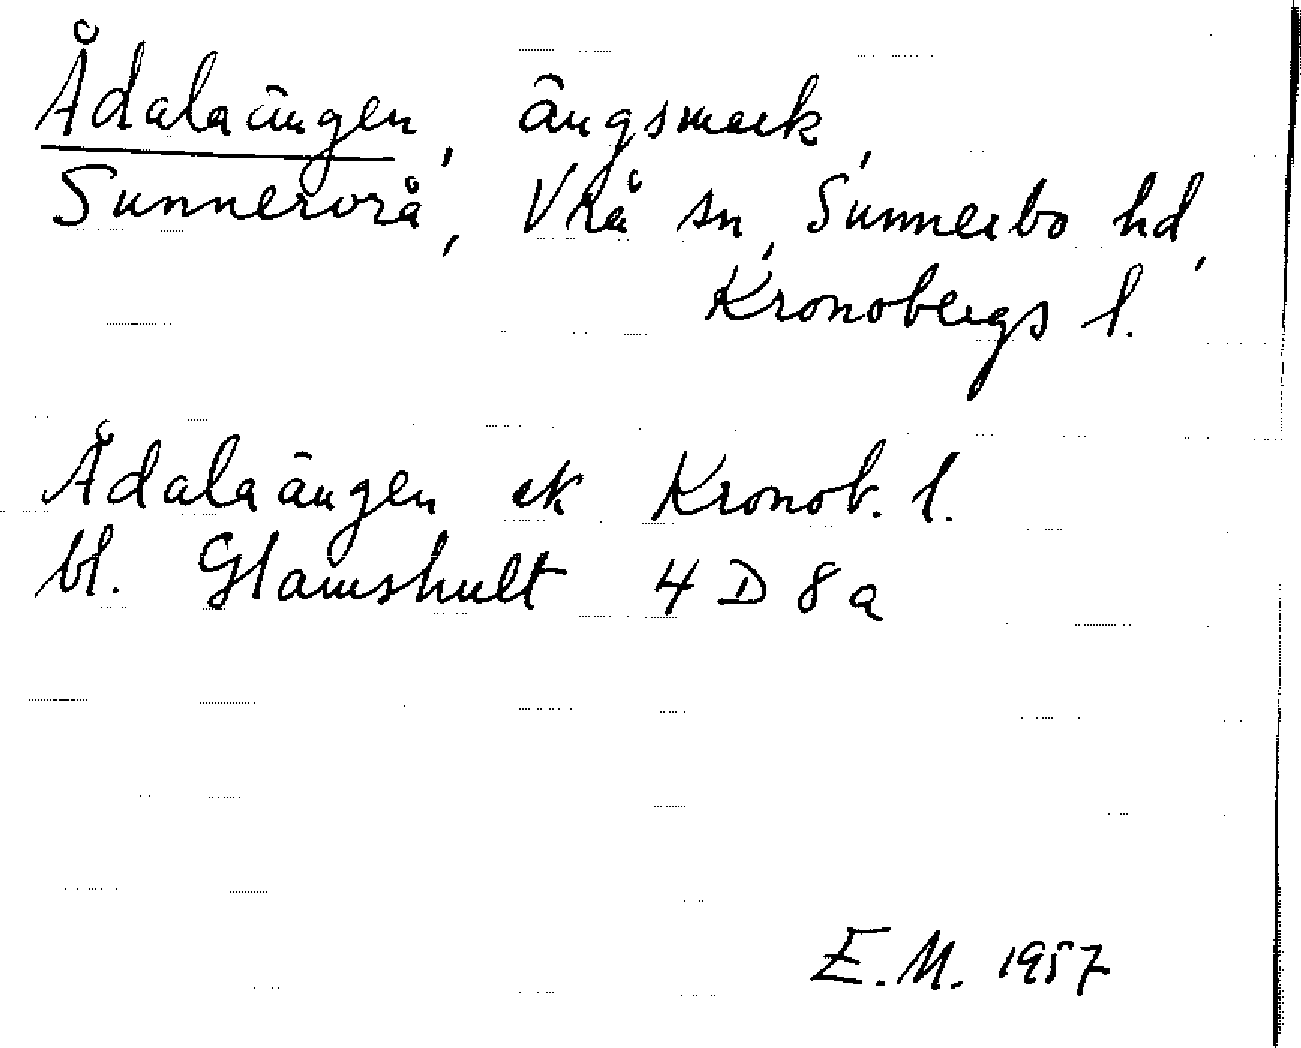 Ådalaängen, ängsmark,
Sunnervrå, Vrå sn, Sunnerbo hd,
Kronobergs l.
Ådalaängen ek Kronob. l.
bl. Glamshult 4 D 8 a
E.M. 1957